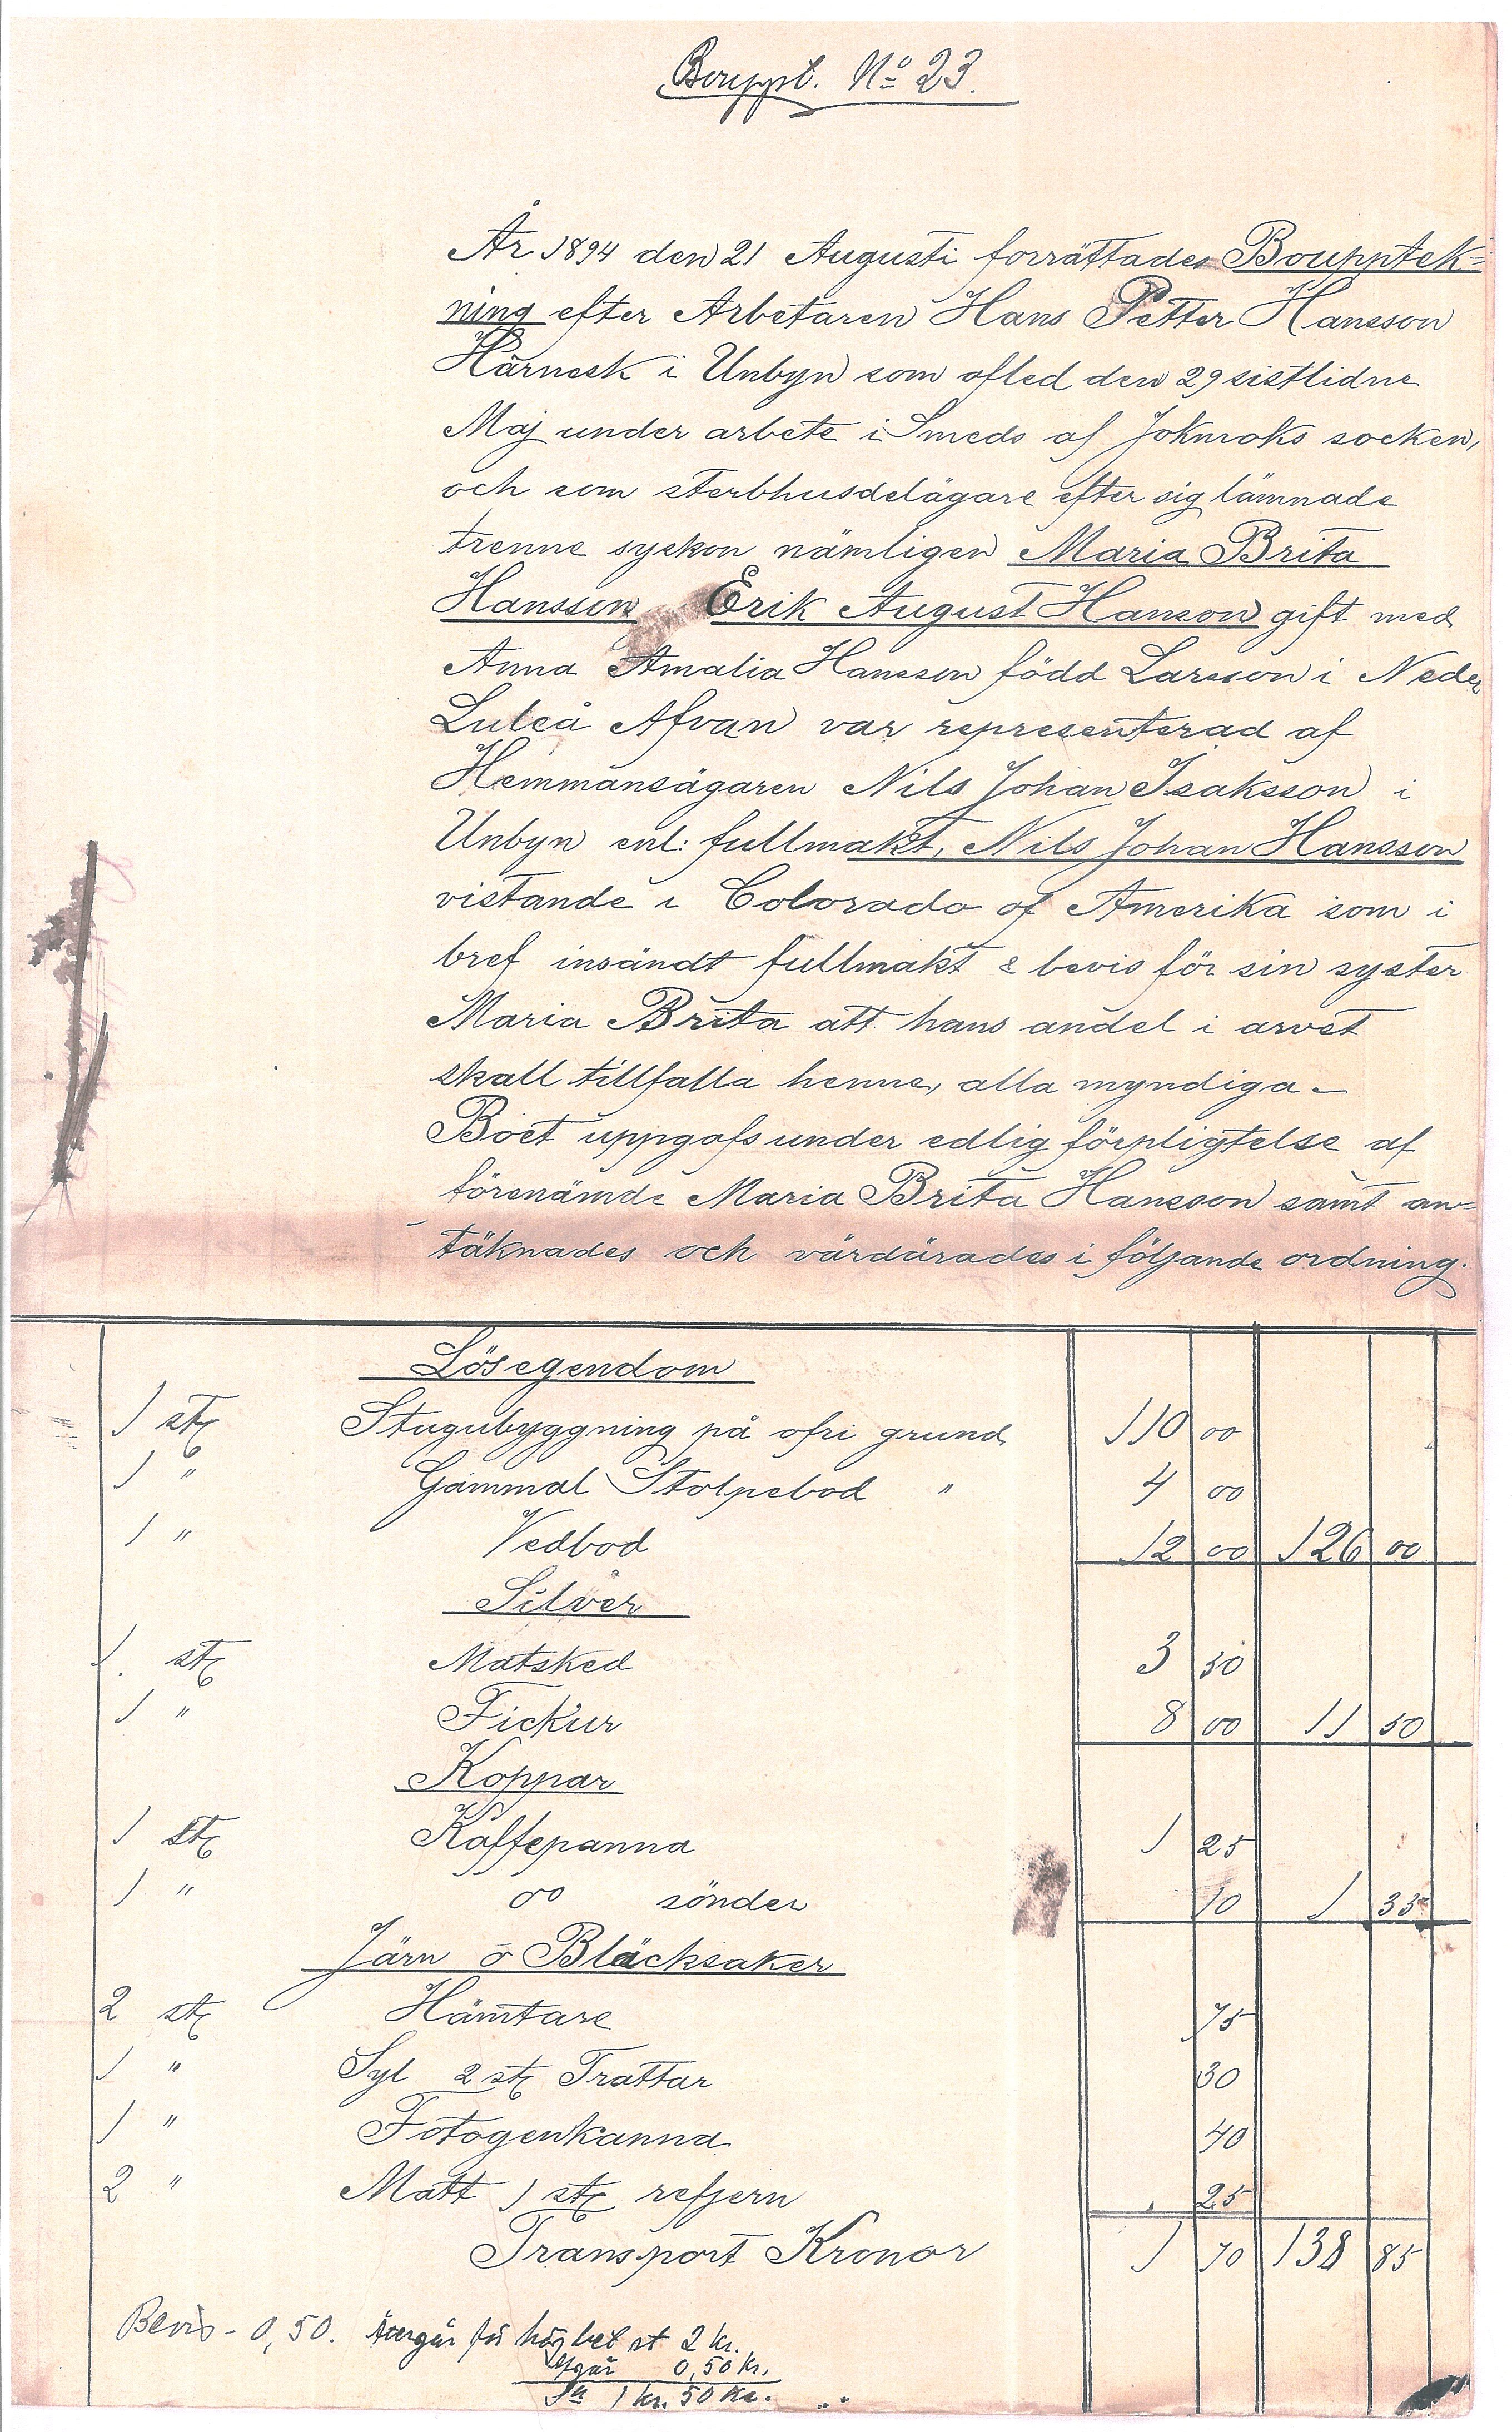 Bouppt. No 23.
År 1894 den 21 Augusti forrättades Bouppték=
ning efter Arbetaren Hans Petter Hansson
Härnesk i Unbyn som afled den 29 sistlidne
Maj under arbete i Smeds af Jokmoks socken,
och som sterbhusdelägare efter sig lämnade
trenne syskon nämligen Maria Brita
Hansson Erik August Hanson gift med
Anna Amalia Hansson född Larsson i Neder
Luleå Afvan var representerad af
Hemmansägaren Nils Johan Isaksson i
Unbyn enl: fullmakt, Nils Johan Hansson
vistande i Colorado af Amerika som i
bref insändt fullmakt & bevis för sin syster
Maria Brita att hans andel i arvet
skall tillfalla henne, alla myndiga -
Boet uppgafs under edlig förpligtelse af
förenämde Maria Brita Hansson samt an=
täknades och värdärades i följande ordning.
Lösegendom
1 st Stugubyggning på ofri grund 110 00
1 " Gammal Stolpebod " 4 00
1 " Vedbod 12 00 126 00
Silver
1. st Matsked 3 50
1 " Fickur 8 00 11 50
Koppar
1 st Kaffepanna 1 25
1 " oo sönder 10 1 35
Järn o Bläcksaker
2 st Hämtare 75
1 " Syl 2 st Trattar 30
1 " Fotogenkanna 40
2 " Matt 1 st refjern 25
Transport Kronor 1 70 138 85
Bevis - 0,50. Återgår för hög bel st 2 kr.
Afgår 0,50 Kr.
Sa 1 kr. 50 kr.